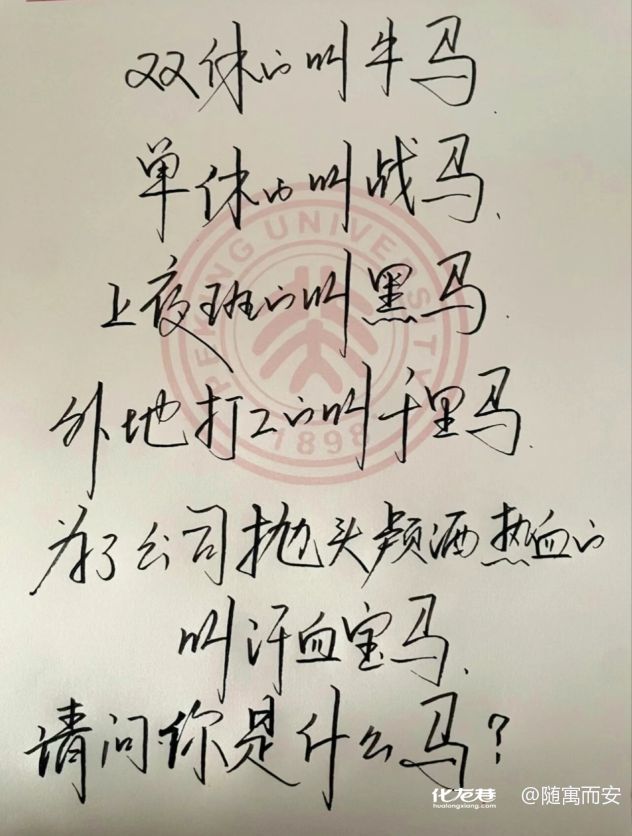 双休的叫牛马
单休的叫战马
上夜班的叫黑马
外地打工的叫千里马
为了公司抛头颅洒热血的
叫汗血宝马
请问你是什么马？
PEKING UNIVERSITY
1898
化龙巷
hualongxiang.com
@随寓而安